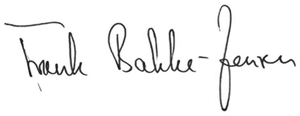 Frank Bakke-Jensen